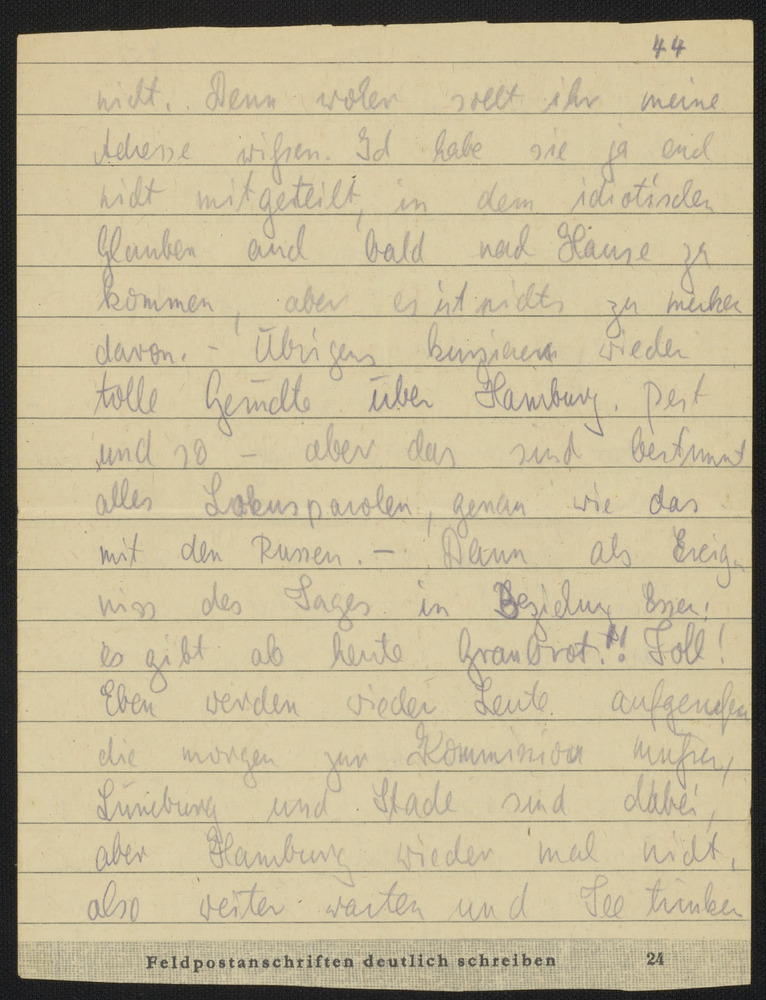 44
nicht. Denn woher sollt ihr meine
Adresse wißen. Ich habe sie ja euch
nicht mitgeteilt, in dem idiotischen
Glauben auch bald nach Hause zu
kommen, aber es ist nichts zu merken
davon. - Übrigens kursieren wieder
tolle Gerüchte über Hamburg. Pest
und so - aber das sind bestimmt
alles Lokusparolen, genau wie das
mit den Russen. - Dann als Ereig-
niss des Tages in Beziehung Essen:
es gibt ab heute Graubrot!! Toll!
Eben werden wieder Leute aufgerufen
die morgen zur Kommission mußen,
Lüneburg und Stade sind dabei,
aber Hamburg wieder mal nicht,
also weiter warten und Tee trinken
Feldpostanschriften deutlich schreiben 24